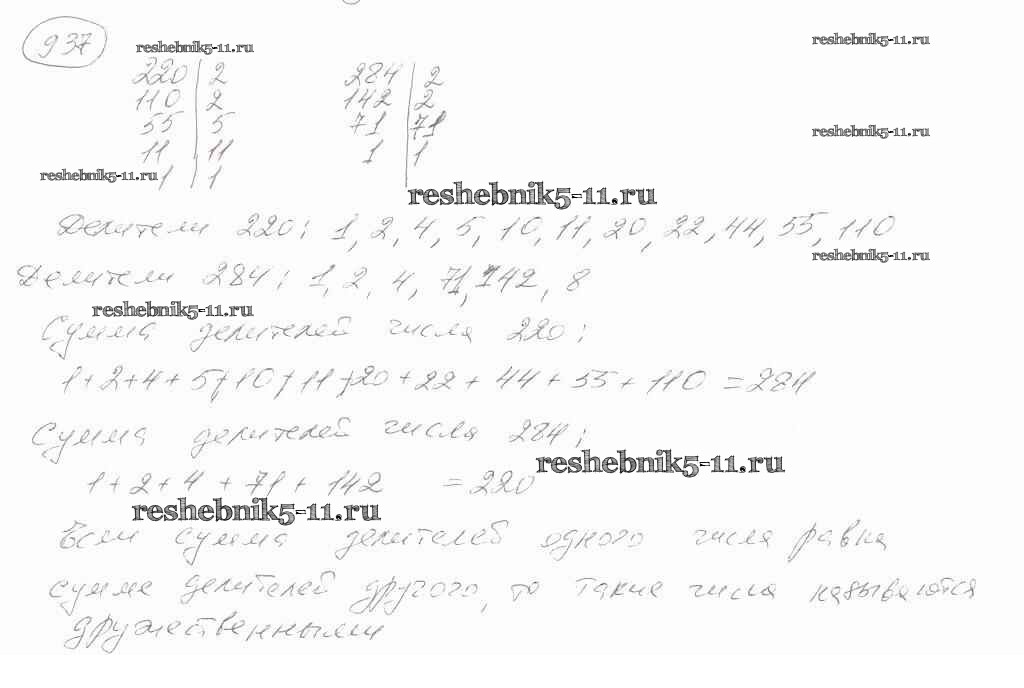 937
reshebnik5-11.ru
reshebnik5-11.ru
220 | 2 284 | 2
110 | 2 142 | 2
55 | 5 71 | 71
reshebnik5-11.ru
11 | 11 1 | 1
reshebnik5-11.ru
1 | 1
reshebnik5-11.ru
Делители 220: 1, 2, 4, 5, 10, 11, 20, 22, 44, 55, 110
reshebnik5-11.ru
Делители 284: 1, 2, 4, 71, 142, 8
reshebnik5-11.ru
Сумма делителей числа 220:
1+2+4+5+10+11+20+22+44+55+110 = 284
Сумма делителей числа 284:
reshebnik5-11.ru
1+2+4+71+142 = 220
reshebnik5-11.ru
Если сумма делителей одного числа равна
сумме делителей другого, то такие числа называются
дружественными